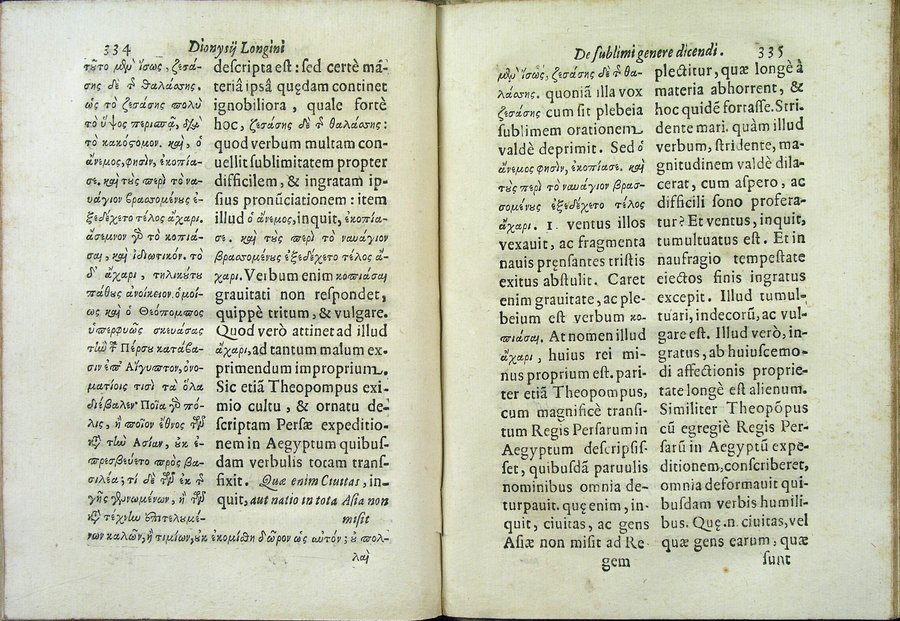 334
Dionysij Longini
τοῦτο μὲν ἴσως, ζεσά-
σης δὲ τ̃ θαλάσσης.
ὡς τὸ ζεσάσης πολὺ
τὸ ὕψος περισπᾷ, διὰ
τὸ κακόστομον. καὶ, ὁ
ἄνεμος, φησὶν, ἐκοπία-
σε. καὶ τοὺς περὶ τὸ να-
υάγιον βρασσομένους ἐ-
ξεδέχετο τέλος ἄχαρι.
ἄσεμνον γὸ τὸ κοπιά-
σαι, καὶ ἰδιωτικόν. τὸ
δ' ἄχαρι, τηλικούτου
πάθους ἀνοίκειον. ὁμοί-
ως καὶ ὁ Θεόπομπος
ὑπερφυῶς σκευάσας
τὴν τ̃ Πέρσου κατάβα-
σιν ἐπ' Αἴγυπτον, ὀνο-
ματίοις τισὶ τὰ ὅλα
διέβαλεν. Ποῖα γὸ πό-
λις, ἢ ποῖον ἔθνος τῶν
κατὰ τὴν Ἀσίαν, οὐκ ἐ-
πρεσβεύετο πρὸς βα-
σιλέα; τί δὲ τῶν ἐκ τ̃
γῆς γεννωμένων, ἢ τῶν
κατὰ τέχνην ἐπιτελουμέ-
νων καλῶν, ἢ τιμίων, οὐκ ἐκομίσθη δῶρον ὡς αὐτόν; οὐ πολ-
λαὶ
descripta est: sed certè má-
teriâ ipsâ quędam continet
ignobiliora, quale fortè
hoc, ζεσάσης δὲ τ̃ θαλάσσης:
quod verbum multam con-
uellit sublimitatem propter
difficilem, & ingratam ip-
sius pronũciationem: item
illud ὁ ἄνεμος, inquit, ἐκοπία-
σε. καὶ τοὺς περὶ τὸ ναυάγιον
βρασσομένους ἐξεδέχετο τέλος ἄ-
χαρι. Verbum enim κοπιάσαι
grauitati non respondet,
quippè tritum, & vulgare.
Quod verò attinet ad illud
ἄχαρι, ad tantum malum ex-
primendum improprium.
Sic etiã Theopompus exi-
mio cultu, & ornatu de-
scriptam Persæ expeditio-
nem in Aegyptum quibus-
dam verbulis totam trans-
fixit. Quæ enim Ciuitas, in-
quit, aut natio in tota Asia non
misit
De sublimi genere dicendi.
335
μὲν ἴσως, ζεσάσης δὲ τ̃ θα-
λάσσης. quoniã illa vox
ζεσάσης cum sit plebeia
sublimem orationem
valdè deprimit. Sed ὁ
ἄνεμος φησὶν, ἐκοπίασε. καὶ
τοὺς περὶ τὸ ναυάγιον βρασ-
σομένους ἐξεδέχετο τέλος
ἄχαρι. 1. ventus illos
vexauit, ac fragmenta
nauis prẹnsantes tristis
exitus abstulit. Caret
enim grauitate, ac ple-
beium est verbum κο-
πιάσαι. At nomen illud
ἄχαρι, huius rei mi-
nus proprium est. pari-
ter etiã Theopompus,
cum magnificè transi-
tum Regis Persarum in
Aegyptum descripsis-
set, quibusdã paruulis
nominibus omnia de-
turpauit. quę enim, in-
quit, ciuitas, ac gens
Asiæ non misit ad Re-
gem
plectitur, quæ longè à
materia abhorrent, &
hoc quidẽ fortasse. Stri-
dente mari. quàm illud
verbum, stridente, ma-
gnitudinem valdè dila-
cerat, cum aspero, ac
difficili sono profera-
tur? Et ventus, inquit,
tumultuatus est. Et in
naufragio tempestate
eiectos finis ingratus
excepit. Illud tumul-
tuari, indecorũ, ac vul-
gare est. Illud verò, in-
gratus, ab huiuscemo-
di affectionis proprie-
tate longè est alienum.
Similiter Theopõpus
cũ egregiè Regis Per-
sarũ in Aegyptũ expe-
ditionem, conscriberet,
omnia deformauit qui-
busdam verbis humili-
bus. Quę.n. ciuitas, vel
quæ gens earum, quæ
sunt